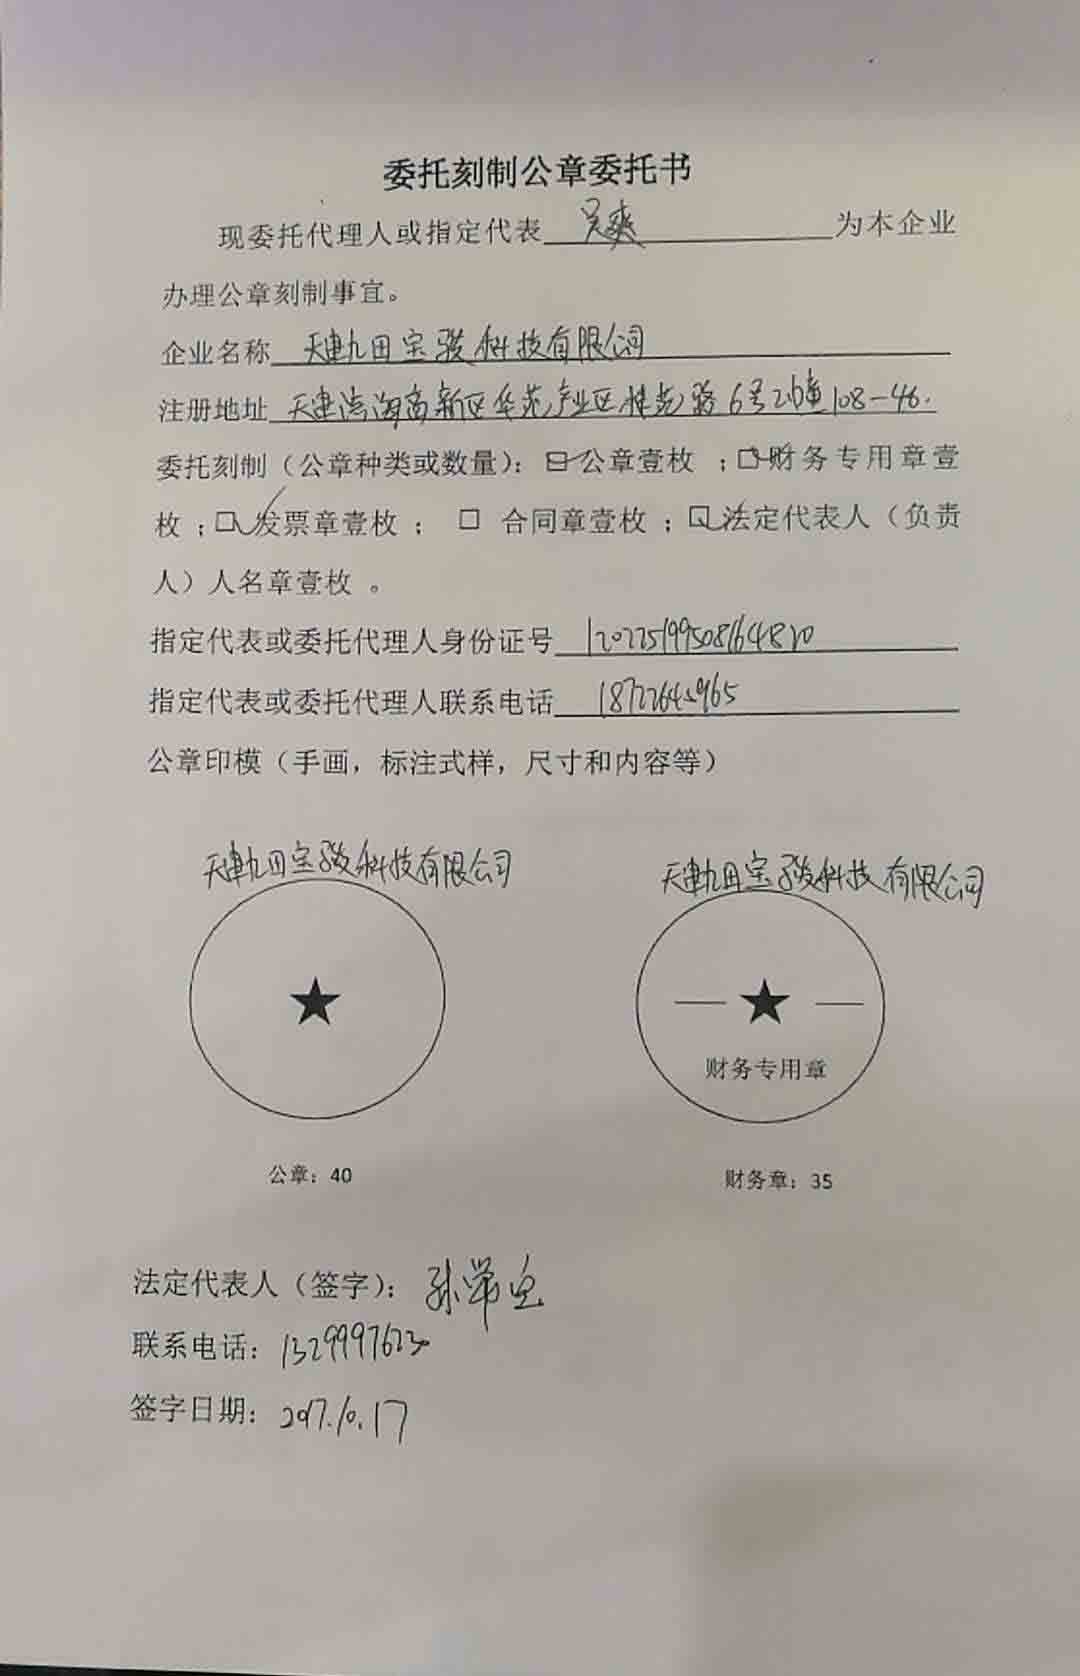 委托刻制公章委托书
现委托代理人或指定代表 吴爽 为本企业
办理公章刻制事宜。
企业名称 天津九田宝骏科技有限公司
注册地址 天津滨海高新区华苑产业区 路6号2幢108-46.
委托刻制（公章种类或数量）：☑公章壹枚 ；☑财务专用章壹
枚 ；☑发票章壹枚 ； □ 合同章壹枚 ；☑法定代表人（负责
人）人名章壹枚 。
指定代表或委托代理人身份证号 120225199508164820
指定代表或委托代理人联系电话
公章印模（手画，标注式样，尺寸和内容等）
天津九田宝骏科技有限公司 天津九田宝骏科技有限公司
财务专用章
公章：40 财务章：35
法定代表人（签字）：孙
联系电话：
签字日期：2017.10.17